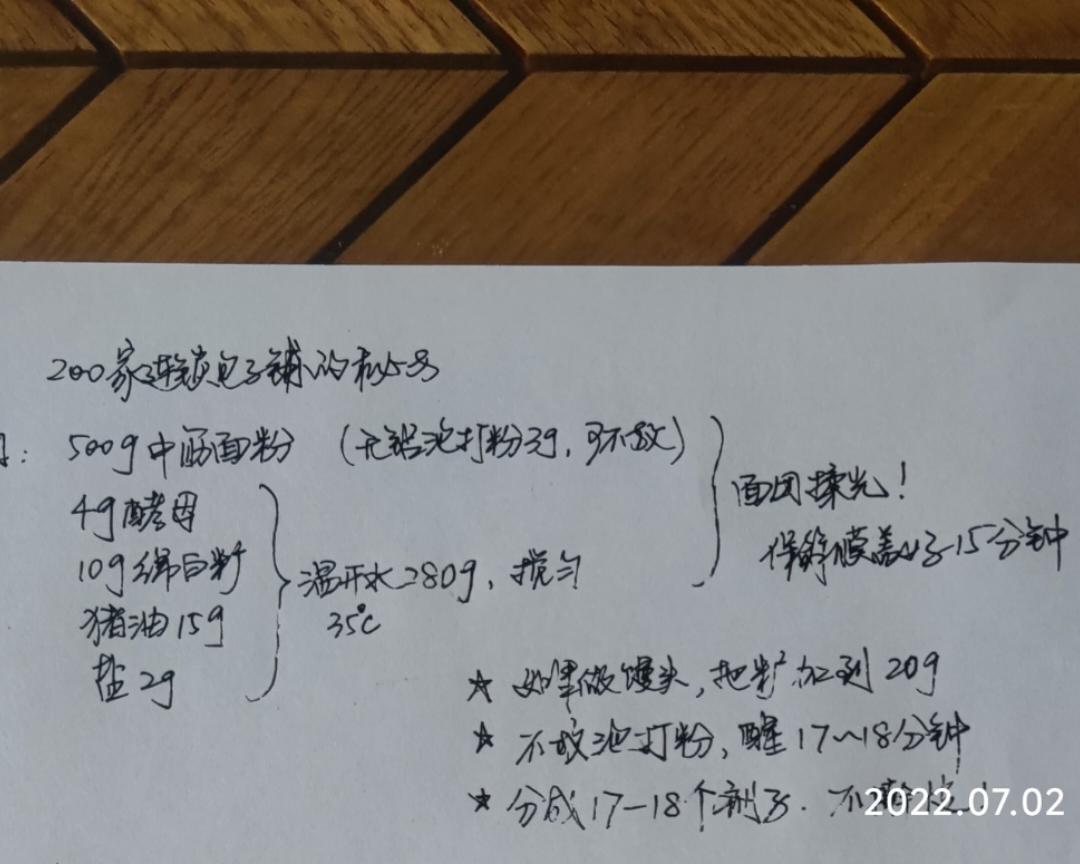 200家连锁包子铺的秘方
: 500g中筋面粉 (无铝泡打粉3g, 可不放)
4g酵母
10g绵白糖
猪油15g
盐2g
温开水280g, 搅匀
35℃
面团揉光!
保鲜膜盖 15分钟
☆ 如果做馒头, 把 加到20g
☆ 不放泡打粉, 醒17~18分钟
☆ 分成17-18个剂子. 不
2022.07.02